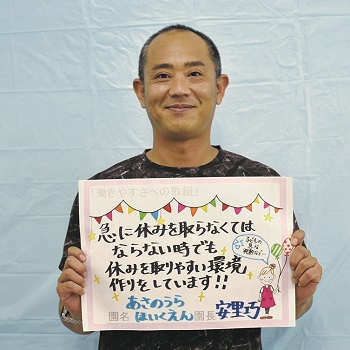 「働きやすさへの取組」
急に休みを取らなくては
ならない時でも
休みを取りやすい環境
作りをしています!!
子どもの
急な
発熱など
あさのうら
園名 ほいくえん 園長 安里巧